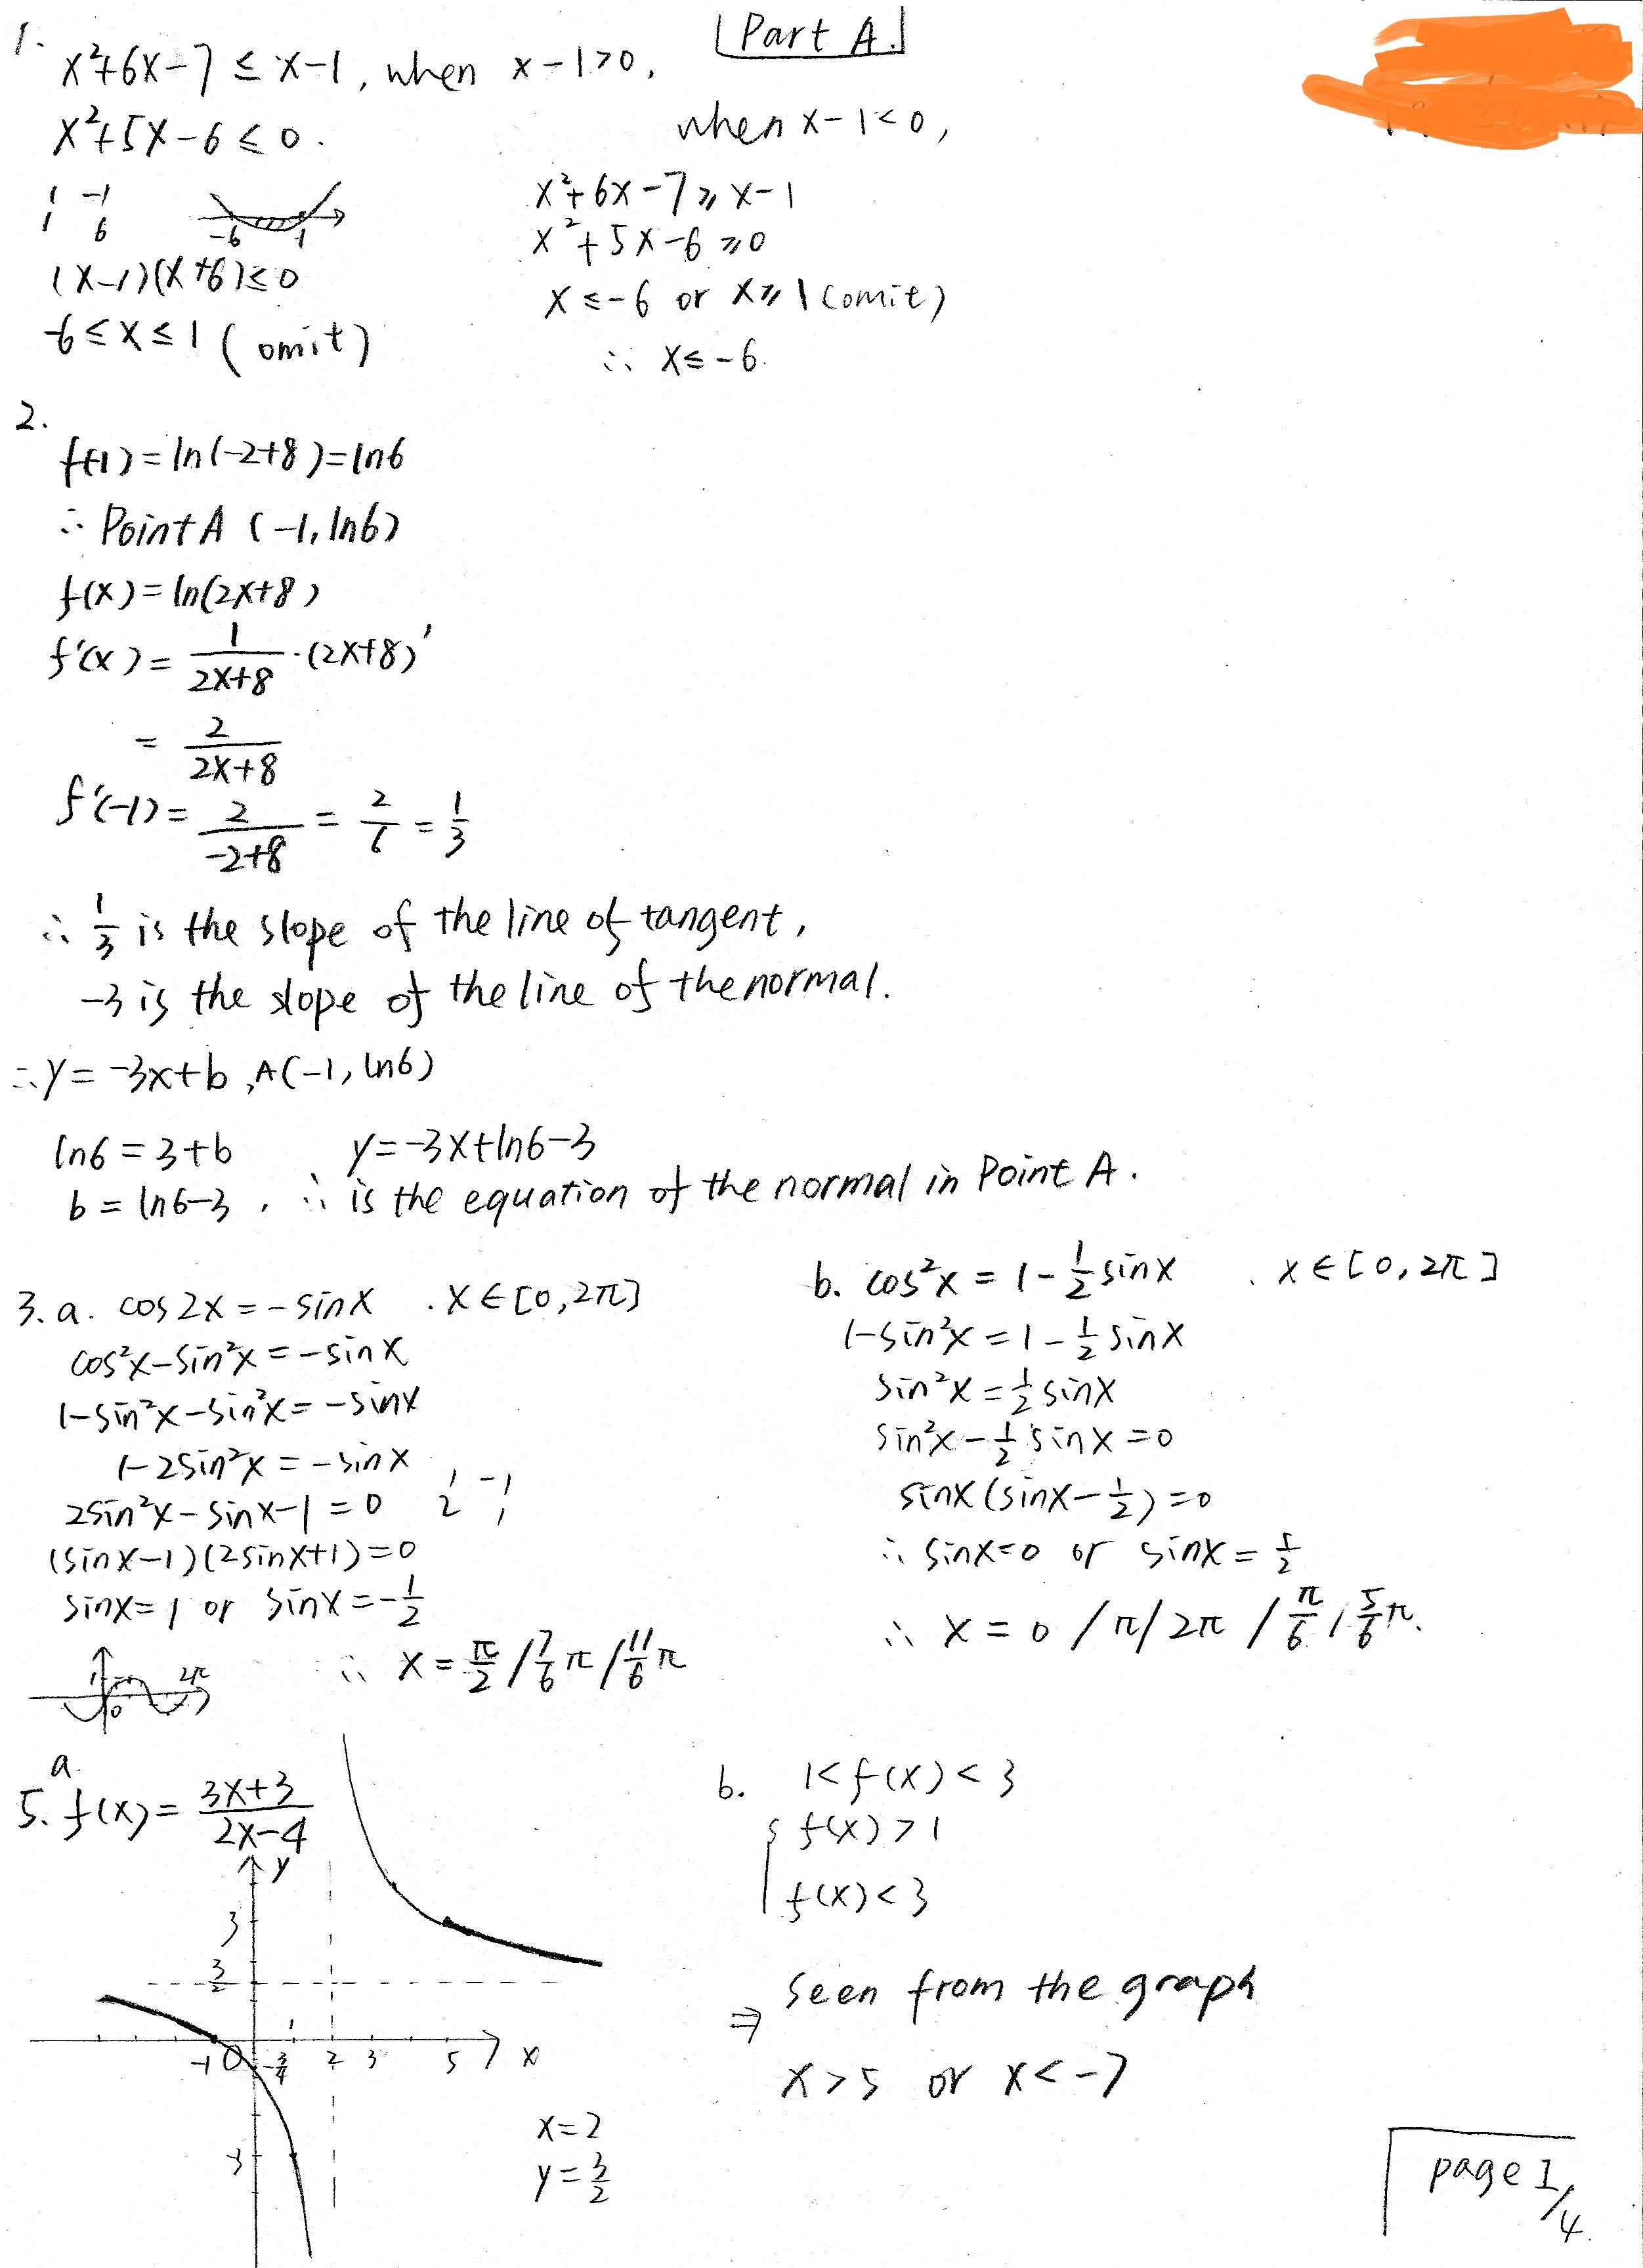 Part A.
1.
x²+6x-7 ≤ x-1, when x-1>0,
x²+5x-6 ≤ 0.
1 -1
1 6
-6 1
(x-1)(x+6)≤0
-6≤x≤1 (omit)
when x-1<0,
x²+6x-7 ≥ x-1
x²+5x-6 ≥ 0
x ≤ -6 or x ≥ 1 (omit)
∴ x ≤ -6.
2.
f(-1) = ln(-2+8) = ln6
∴ Point A (-1, ln6)
f(x) = ln(2x+8)
f'(x) = 1/(2x+8) · (2x+8)'
= 2/(2x+8)
f'(-1) = 2/(-2+8) = 2/6 = 1/3
∴ 1/3 is the slope of the line of tangent,
-3 is the slope of the line of the normal.
∴ y = -3x+b, A(-1, ln6)
ln6 = 3+b
b = ln6-3.
y = -3x+ln6-3
∴ is the equation of the normal in Point A.
3. a. cos2x = -sinx . x∈[0, 2π]
cos²x-sin²x = -sinx
1-sin²x-sin²x = -sinx
1-2sin²x = -sinx
2sin²x-sinx-1 = 0
1 -1
2 1
(sinx-1)(2sinx+1) = 0
sinx = 1 or sinx = -1/2
1 0 2π
∴ x = π/2 / 7/6 π / 11/6 π
b. cos²x = 1 - 1/2 sinx . x∈[0, 2π]
1-sin²x = 1 - 1/2 sinx
sin²x = 1/2 sinx
sin²x - 1/2 sinx = 0
sinx(sinx - 1/2) = 0
∴ sinx=0 or sinx = 1/2
∴ x = 0 / π / 2π / π/6 / 5/6 π.
5. a. f(x) = (3x+3)/(2x-4)
y
3
3/2
1
-1 0 -3/4 2 3 5 x
-3
x=2
y=3/2
b. 1<f(x)<3
{ f(x)>1
f(x)<3
⇒ seen from the graph
x>5 or x<-7
page 1/4.